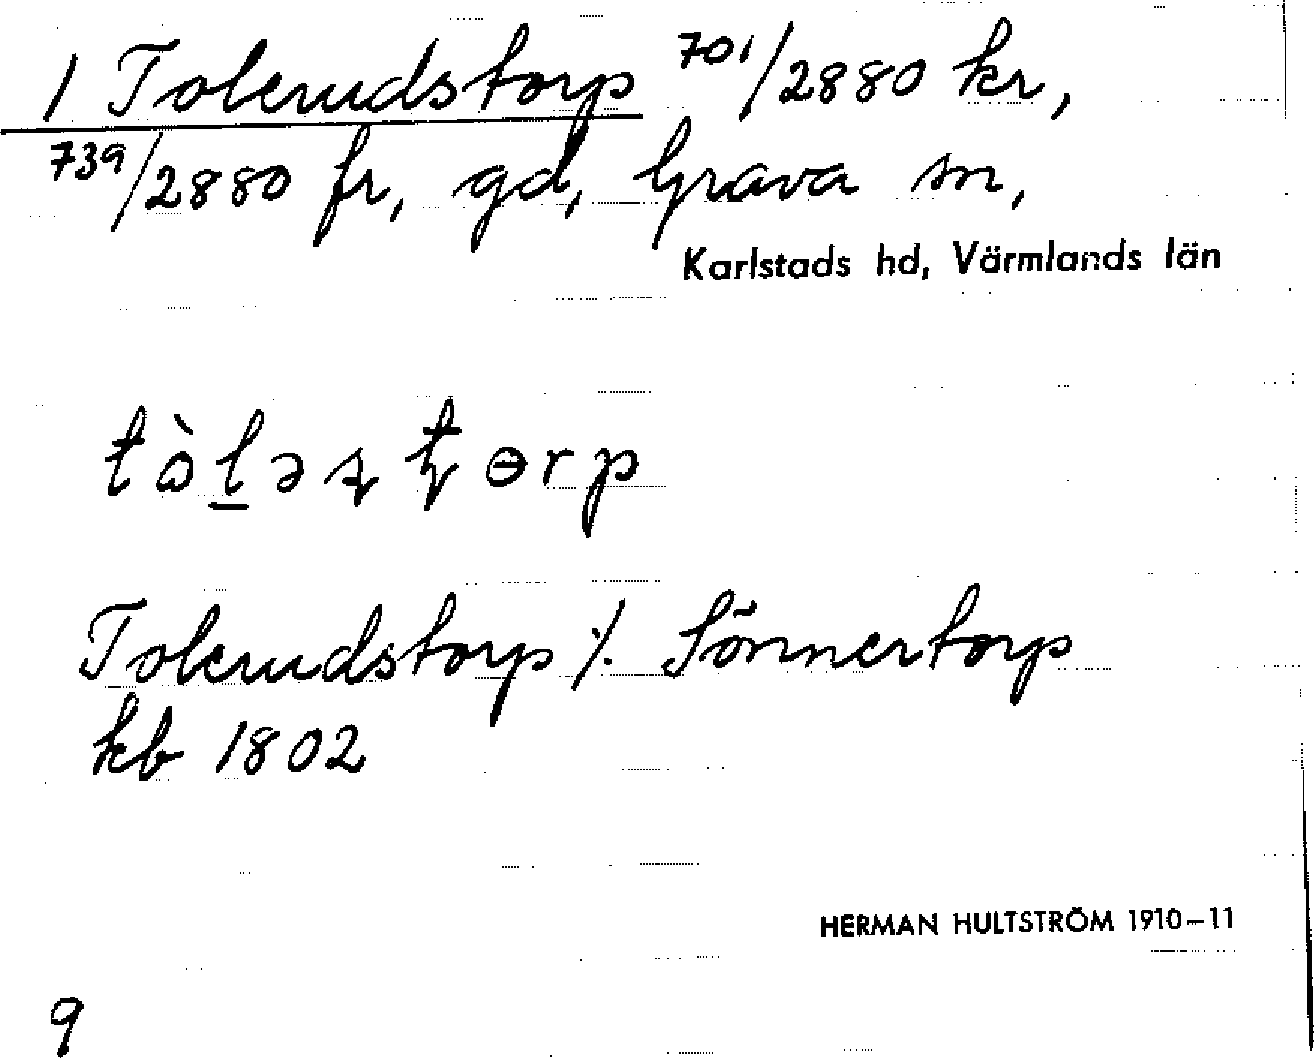 1 Tolerudstorp 701/2880 kr,
739/2880 fr, gd, Grava sn,
Karlstads hd, Värmlands län
tòl̲əʂʈɵrp
Tolerudstorp ./. Sönnertorp
kb 1802
HERMAN HULTSTRÖM 1910–11
9